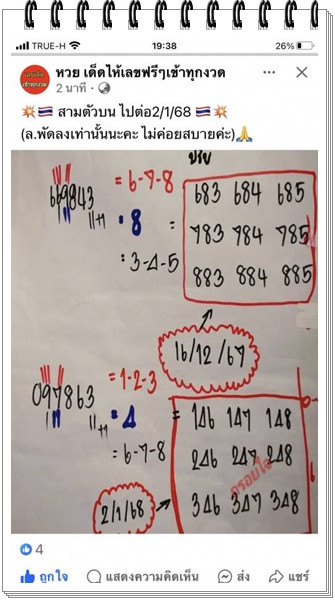 TRUE-H 19:38 26%
เลขเด็ด เข้าทุกงวด
หวย เด็ดให้เลขฟรีๆเข้าทุกงวด ... X
2 นาที ·
💥🇹🇭 สามตัวบน ไปต่อ2/1/68 🇹🇭💥
(ล.พัดลงเท่านั้นนะคะ ไม่ค่อยสบายค่ะ)🙏
669843 = 6-7-8
11+1 = 8 =
= 3-4-5
683 684 685
783 784 785
883 884 885
16/12/67
097863 = 1-2-3
11+1 = 4 =
= 6-7-8
146 147 148
246 247 248
346 347 348
2/1/68
4
ถูกใจ แสดงความคิดเห็น ส่ง แชร์